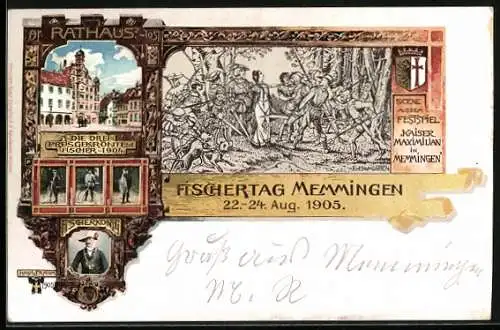 19 RATHAUS 05
DIE DREI
PREISGEKRÖNTEN
FISCHER 1904
FISCHERKÖNIG
SCENE
AUS DEM
FESTSPIEL
"KAISER
MAXIMILIAN
IN
MEMMINGEN"
FISCHERTAG MEMMINGEN
22.-24. Aug. 1905.
Gruß aus Memmingen